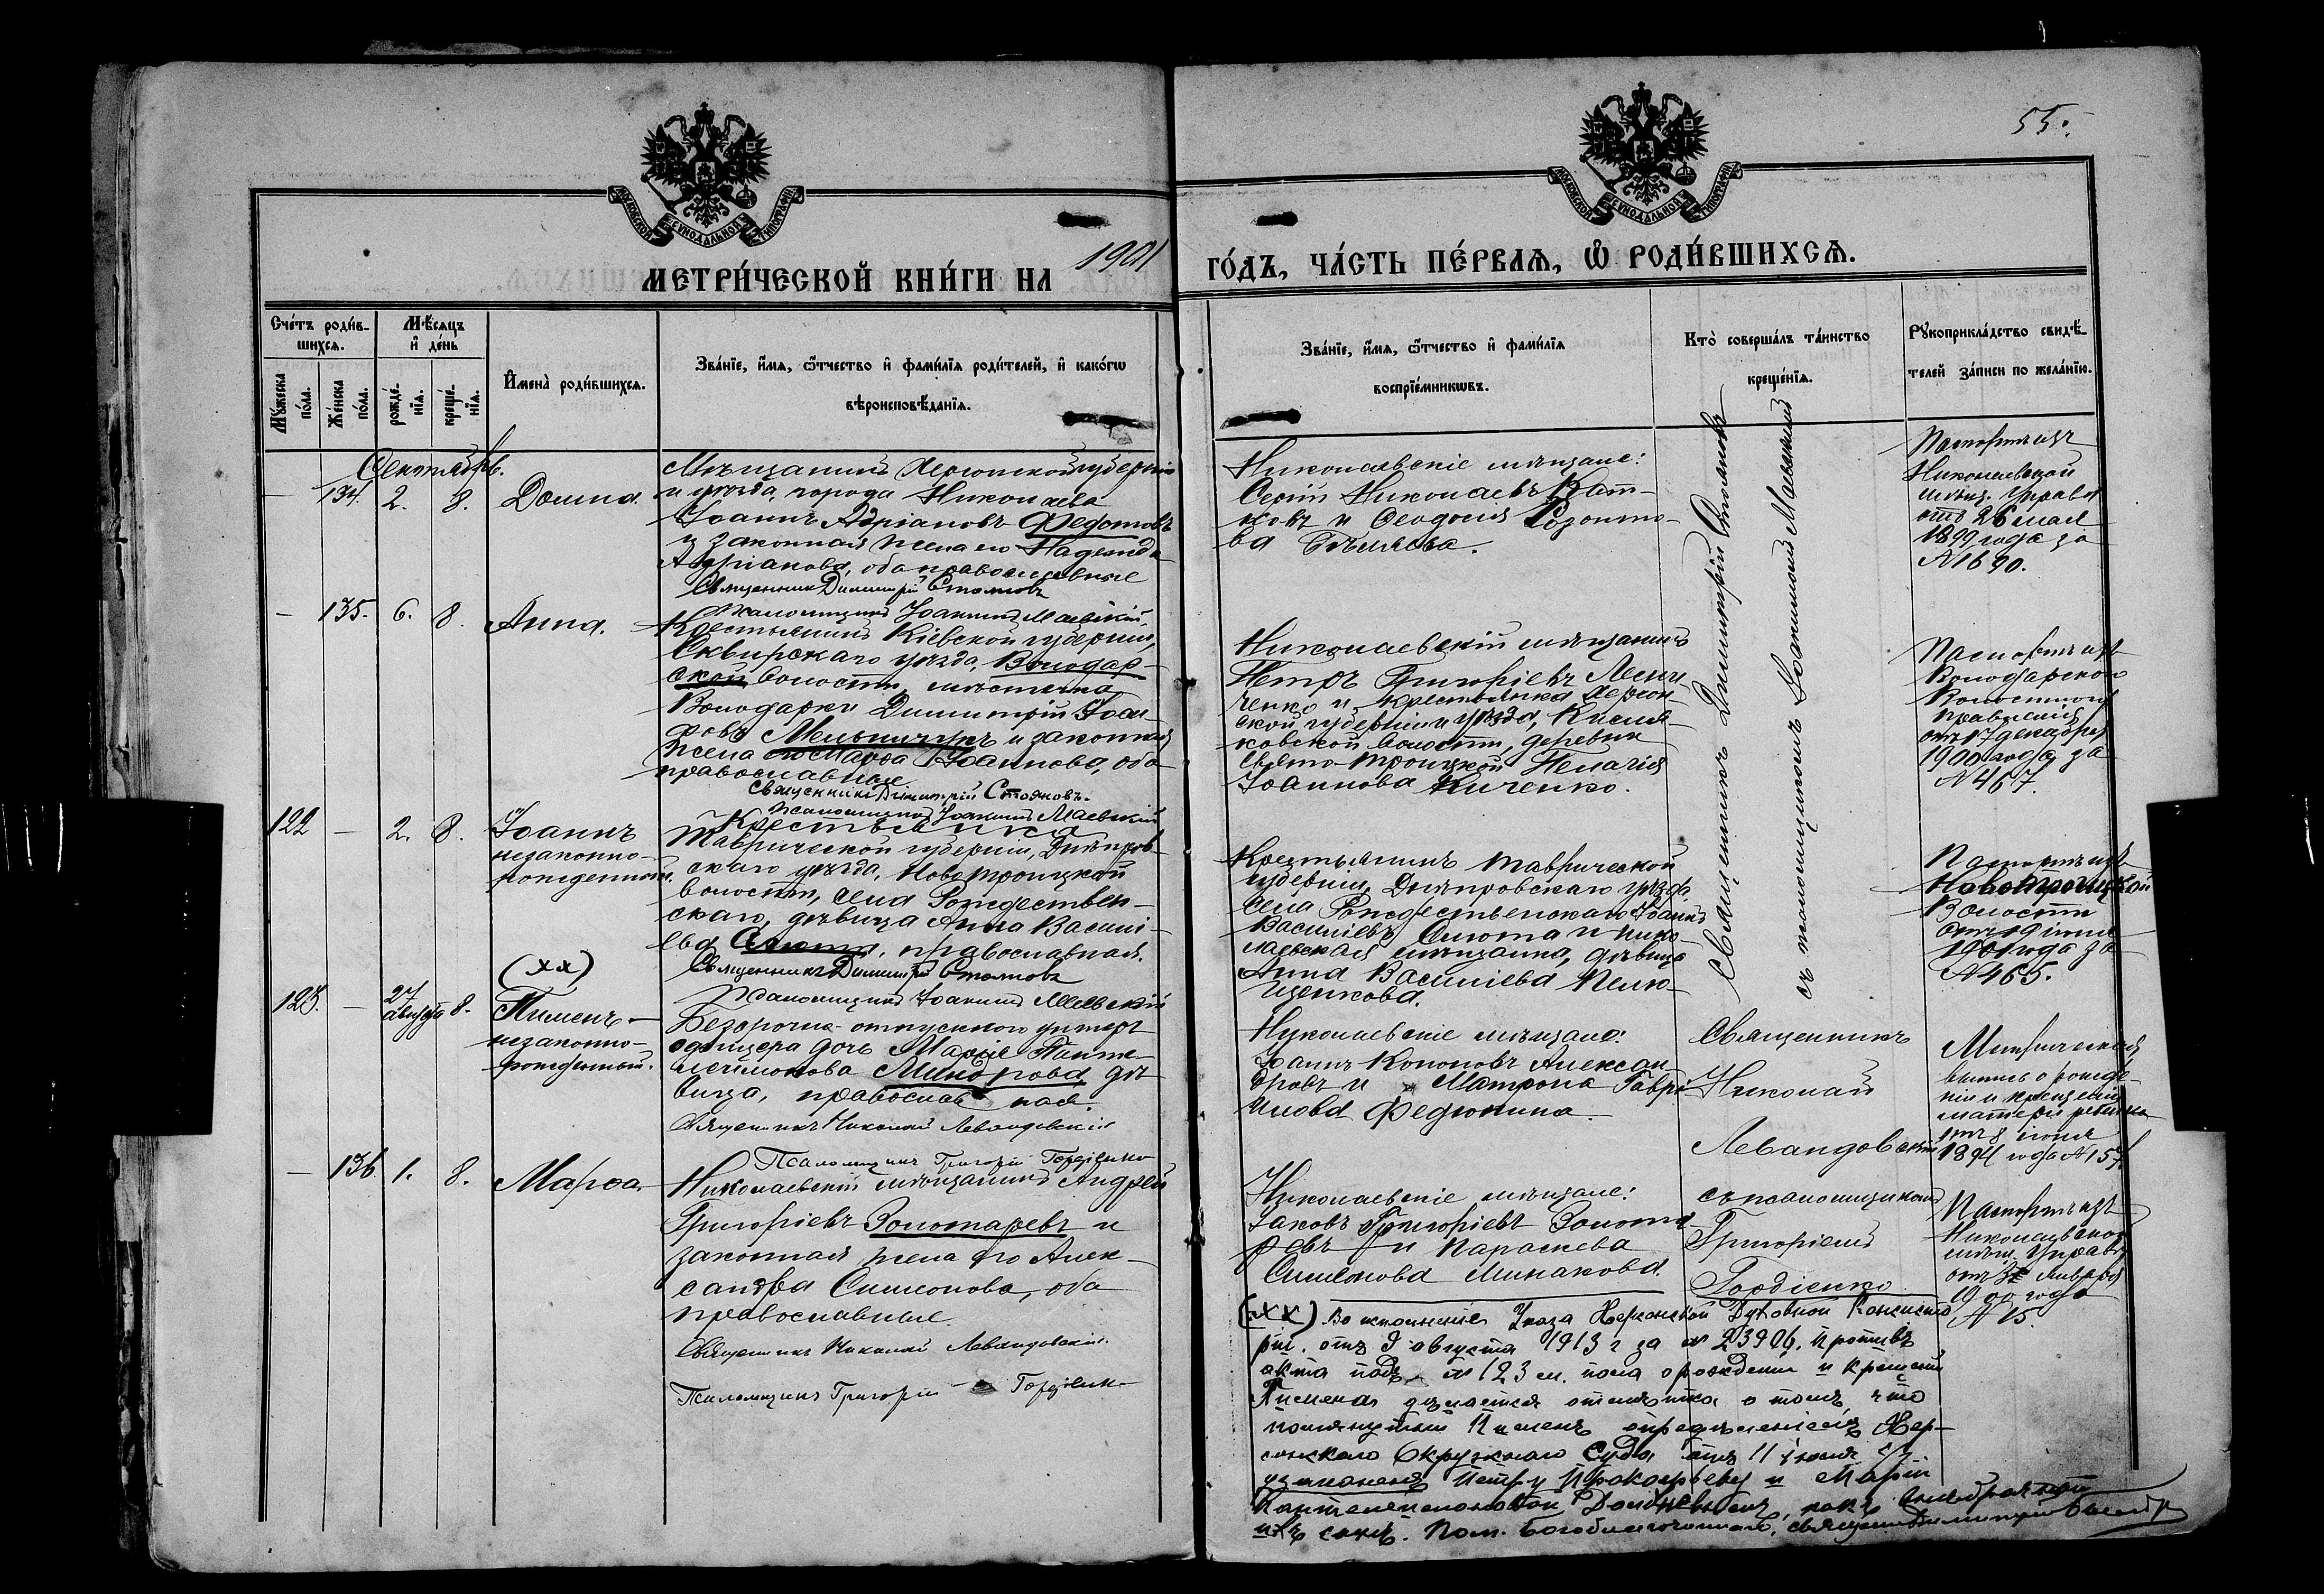 55.
МОСКОВСКОЙ СѴНОДАЛЬНОЙ ТИПОГРАФІИ
МОСКОВСКОЙ СѴНОДАЛЬНОЙ ТИПОГРАФІИ
МЕТРИ́ЧЕСКОЙ КНИ́ГИ НА 1901 ГО́ДЪ, ЧА́СТЬ ПЕ́РВАѦ, Ѡ РОДИ́ВШИХСѦ.
Сче́тъ роди́в-
шихсѧ.
Мꙋ́жеска по́ла.
Же́нска по́ла.
Мѣ́сѧцъ
и де́нь
рожде́-
нїѧ.
креще́-
нїѧ.
Имена̀ роди́вшихсѧ.
Зва́нїе, и́мѧ, ѻ́тчество и фами́лїѧ роди́телей, и како́гѡ
вѣроисповѣ́данїѧ.
Зва́нїе, и́мѧ, ѻ́тчество и фами́лїѧ
воспрїе́мникѡвъ.
Кто̀ соверша́лъ та́инство
креще́нїѧ.
Рꙋкоприкла́дство свидѣ́-
телей за́писи по жела́нїю.
Сентябрь.
134. 2. 8. Домна.
Мѣщанинъ Херсонской губерніи
и уѣзда, города Николаева
Іоаннъ Адріановъ Федотовъ
и законная жена его Надежда
Адріанова, оба православные
Священникъ Димитрій Стояновъ
Псаломщикъ Іоакимъ Маевскій
Николаевскіе мѣщане:
Сергій Николаевъ
и Ѳеодосія
ва Бѣляева.
Священникъ Димитрій Стояновъ
съ псаломщикомъ Іоакимомъ Маевскимъ
Паспортъ изъ
Николаевской
мѣщ. Управы
отъ 26 мая
1899 года за
№ 1690.
135. 6. 8. Анна.
Крестьянинъ Кіевской губерніи,
Сквирскаго уѣзда, Володар-
ской волости, мѣстечка
Володарки Димитрій Іоси-
фовъ Мельничукъ и законная
жена его Марѳа Іоаннова, оба
православные
Священникъ Димитрій Стояновъ.
Псаломщикъ Іоакимъ Маевскій
Николаевскій мѣщанинъ
Петръ Григоріевъ
ченко и крестьянка Херсон-
ской губерніи и уѣзда, Кисля-
ковской волости, деревни
Свято-Троицкой Пелагія
Іоаннова Киченко.
Паспортъ изъ
Володарскаго
Волостного
правленія
отъ 17 декабря
1900 года за
№ 467.
122 2. 8. Іоаннъ
незаконно-
рожденный.
Крестьянка
Таврической губерніи, Днѣпров-
скаго уѣзда, Новотроицкой
волости, села Рождествен-
скаго, дѣвица Анна Василі-
ева Сиюта, православная.
Священникъ Димитрій Стояновъ
Псаломщикъ Іоакимъ Маевскій
Крестьянинъ Таврической
губерніи, Днѣпровскаго уѣзда,
села Рождественскаго Іоаннъ
Василіевъ Сиюта и нико-
лаевская мѣщанка, дѣвица
Анна Василіева Пелю-
щенкова.
Паспортъ изъ
Новотроицкой
Волости
отъ 19 іюня
1901 года за
№ 465.
(хх)
123. 27 августа 8. Пименъ
незаконно-
рожденный.
Безсрочно-отпускного унтеръ
офицера дочь Марія Панте-
леимонова Миндрова дѣ-
вица, православная.
Священникъ Николай Левандовскій
Псаломщикъ Григорій Гордіенко
Николаевскіе мѣщане:
Іоаннъ Кононовъ Алексан-
дровъ и Матрона Гаврі-
илова Федюнина.
Священникъ
Николай
Левандовскій
съ псаломщикомъ
Григоріемъ
Гордіенко
Метрическая
выпись о рожде-
ніи и крещеніи
матери ребенка
отъ 8 іюня
1894 года № 157.
136. 1. 8. Марѳа.
Николаевскій мѣщанинъ Андрей
Григоріевъ Золотаревъ и
законная жена его Алек-
сандра Симеонова, оба
православные.
Священникъ Николай Левандовскій
Псаломщикъ Григорій Гордіенко
Николаевскіе мѣщане:
Іаковъ Григоріевъ Золота-
ревъ и Параскева
Симеонова Минакова.
Паспортъ изъ
Николаевской
мѣщ. Управы
отъ января
1900 года
№ 15.
(хх) Во исполненіе Указа Херсонской Духовной Консисто-
ріи отъ 9 августа 1913 г за № 23906, противъ
акта подъ № 123 м. пола о рожденіи и крещеніи
Пимена дѣлается отмѣтка о томъ, что
помянутый Пименъ опредѣленіемъ Хер-
сонскаго Окружнаго Суда отъ 11 іюня
узаконенъ Петру Прокофьеву и Маріи
Пантелеимоновой какъ
ихъ сынъ. священ. Димитрій